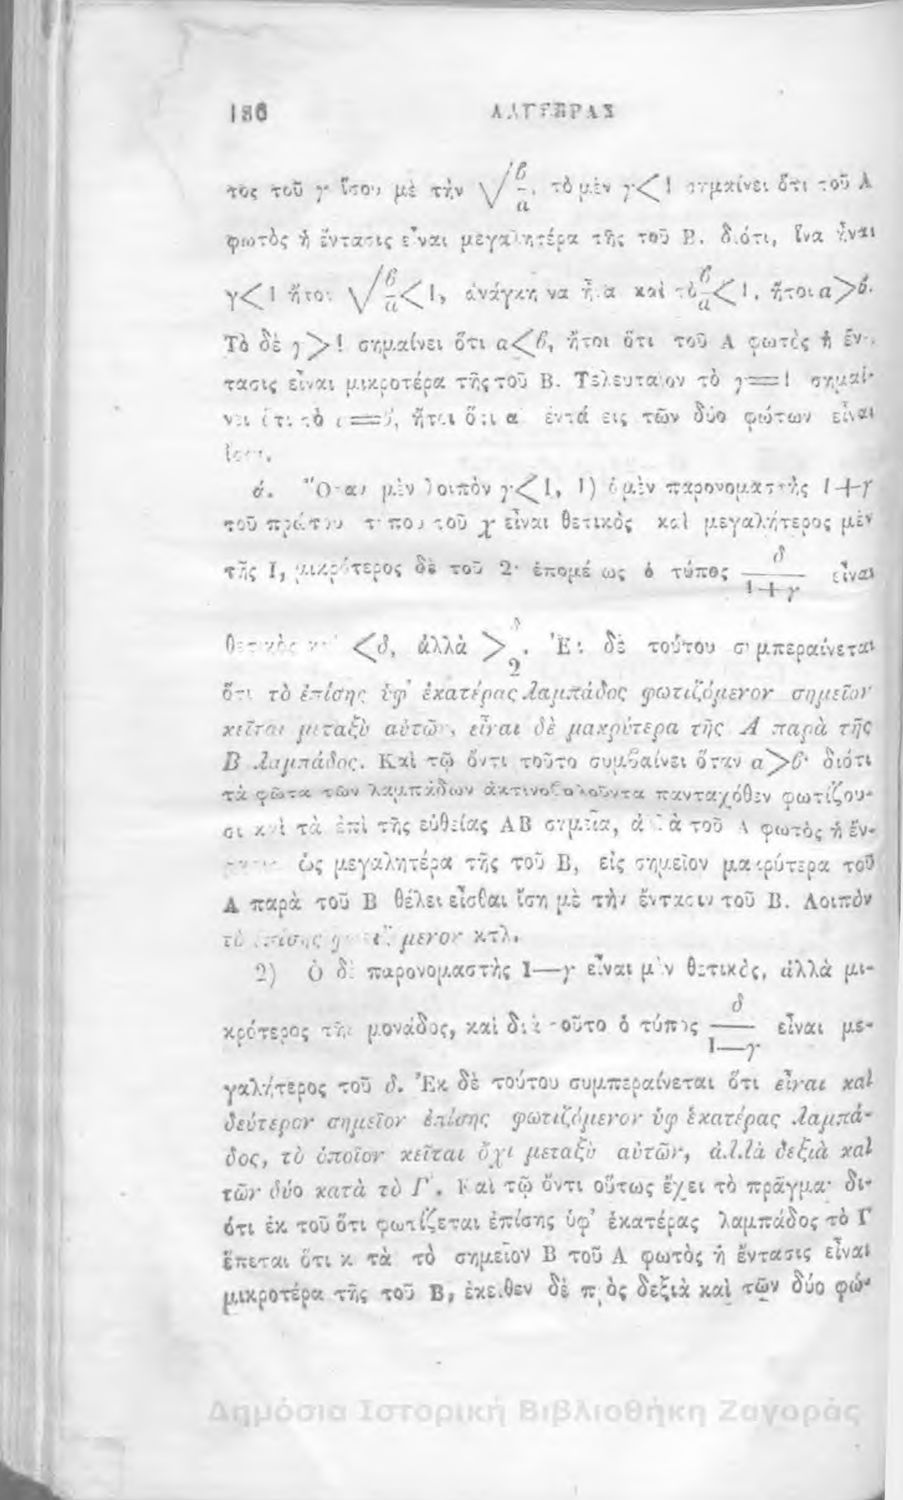 186 ΑΛΓΕΒΡΑΣ
τος τοῦ γ ἴσου μὲ τὴν √β/α, τὸ μὲν γ<1 σημαίνει ὅτι τοῦ Α
φωτὸς ἡ ἔντασις εἶναι μεγαλητέρα τῆς τοῦ Β. διότι, ἵνα ἦναι
γ<1 ἤτοι √β/α<1, ἀνάγκη να ἦναι καὶ τὸ β/α<1, ἤτοι α>β.
Τὸ δὲ γ>1 σημαίνει ὅτι α<β, ἤτοι ὅτι τοῦ Α φωτὸς ἡ ἔν-
τασις εἶναι μικροτέρα τῆς τοῦ Β. Τελευταῖον τὸ γ=1 σημαί-
νει ὅτι τὸ α=β, ἤτοι ὅτι αἱ ἐντάσεις τῶν δύο φώτων εἶναι
ἴσαι.
ά. Ὅταν μὲν λοιπὸν γ<1, 1) ὁ μὲν παρονομαστὴς 1+γ
τοῦ πρώτου τύπου τοῦ χ εἶναι θετικὸς καὶ μεγαλήτερος μὲν
τῆς 1, μικρότερος δὲ τοῦ 2· ἑπομένως ὁ τύπος δ/1+γ εἶναι
θετικὸς καὶ <δ, ἀλλὰ >δ/2. Ἐκ δὲ τούτου συμπεραίνεται
ὅτι τὸ ἐπίσης ὑφ' ἑκατέρας λαμπάδος φωτιζόμενον σημεῖον
κεῖται μεταξὺ αὐτῶν, εἶναι δὲ μακρύτερα τῆς Α παρὰ τῆς
Β λαμπάδος. Καὶ τῷ ὄντι τοῦτο συμβαίνει ὅταν α>β· διότι
τὰ φῶτα τῶν λαμπάδων ἀκτινοβολοῦντα πανταχόθεν φωτίζου-
σι καὶ τὰ ἐπὶ τῆς εὐθείας ΑΒ σημεῖα, ἀλλὰ τοῦ Α φωτὸς ἡ ἔν-
τασις ὡς μεγαλητέρα τῆς τοῦ Β, εἰς σημεῖον μακρύτερα τοῦ
Α παρὰ τοῦ Β θέλει εἶσθαι ἴση μὲ τὴν ἔντασιν τοῦ Β. Λοιπὸν
τὸ ἐπίσης φωτιζόμενον κτλ.
2) Ὁ δὲ παρονομαστὴς 1—γ εἶναι μὲν θετικὸς, ἀλλὰ μι-
κρότερος τῆς μονάδος, καὶ διὰ τοῦτο ὁ τύπος δ/1—γ εἶναι με-
γαλήτερος τοῦ δ. Ἐκ δὲ τούτου συμπεραίνεται ὅτι εἶναι καὶ
δεύτερον σημεῖον ἐπίσης φωτιζόμενον ὑφ ἑκατέρας λαμπά-
δος, τὸ ὁποῖον κεῖται ὄχι μεταξὺ αὐτῶν, ἀλλὰ δεξιὰ καὶ
τῶν δύο κατὰ τὸ Γ'. Καὶ τῷ ὄντι οὕτως ἔχει τὸ πρᾶγμα· δι-
ότι ἐκ τοῦ ὅτι φωτίζεται ἐπίσης ὑφ' ἑκατέρας λαμπάδος τὸ Γ
ἕπεται ὅτι κατὰ τὸ σημεῖον Β τοῦ Α φωτὸς ἡ ἔντασις εἶναι
μικροτέρα τῆς τοῦ Β, ἐκεῖθεν δὲ πρὸς δεξιὰ καὶ τῶν δύο φώ-
Δημόσια Ιστορική Βιβλιοθήκη Ζαγοράς